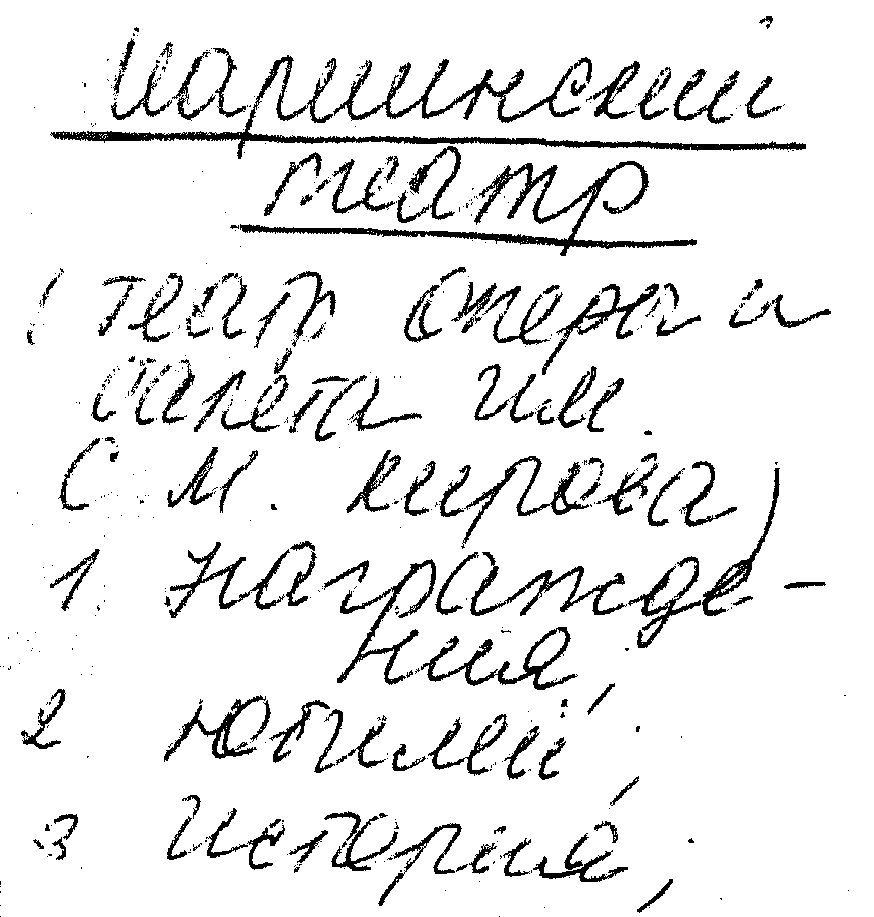 Мариинский
театр
(театр оперы и
балета им.
С. М. Кирова)
1. Награжде-
ния;
2 юбилей;
3 история;